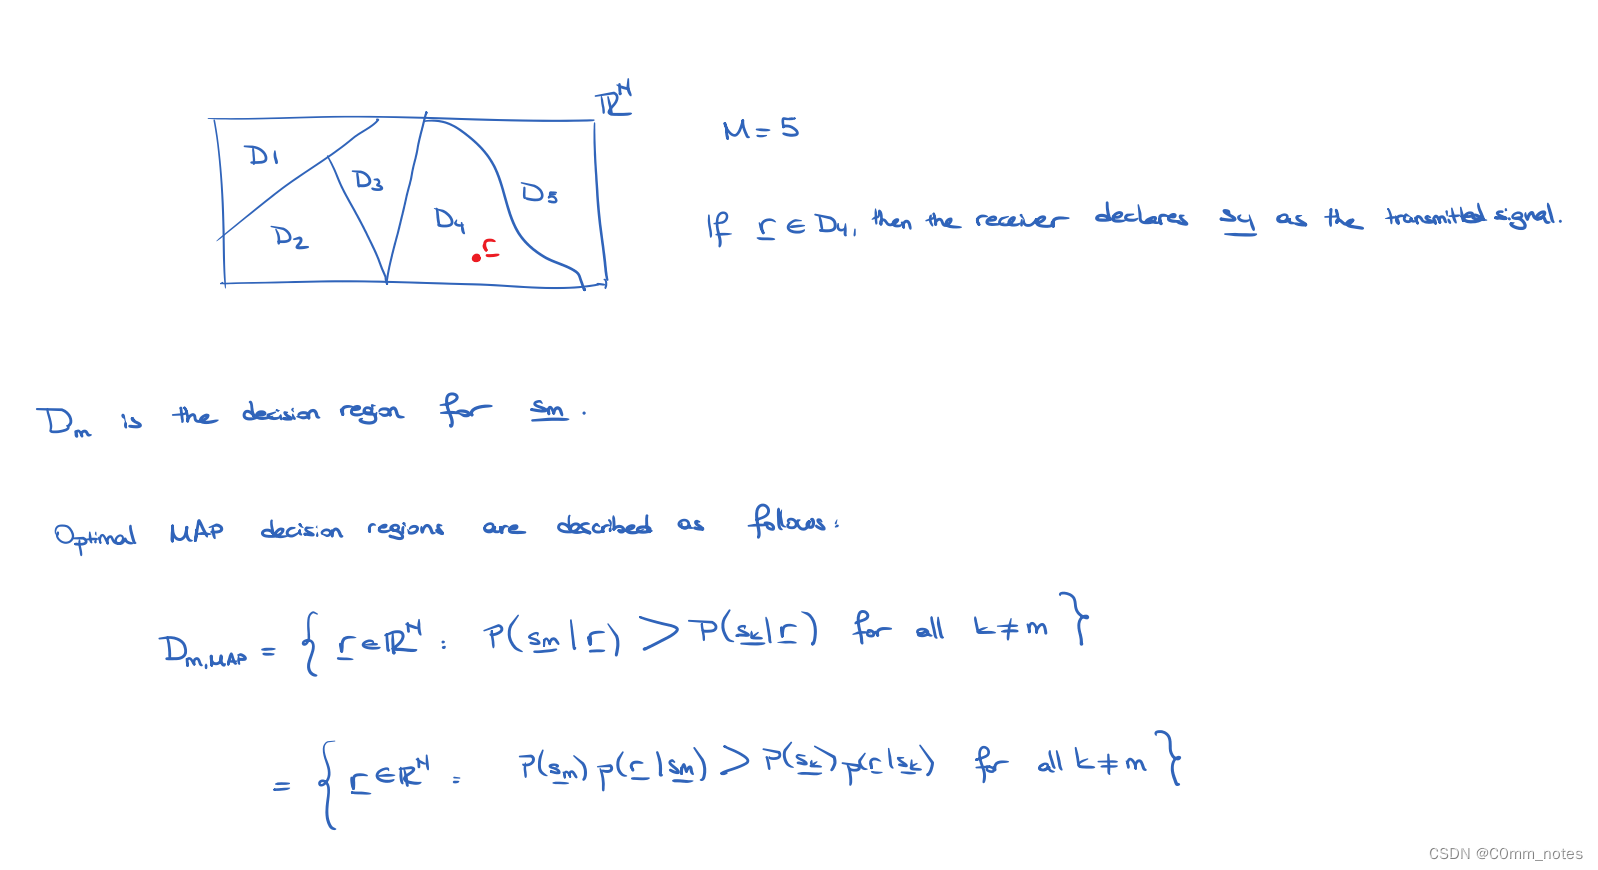 ℝᴺ
D1
D2
D3
D4
D5
r
M = 5
If r ∈ D4, then the receiver declares s4 as the transmitted signal.
Dm is the decision region for sm.
Optimal MAP decision regions are described as follows:
Dm,MAP = { r ∈ ℝᴺ : P(sm|r) > P(sk|r) for all k ≠ m }
= { r ∈ ℝᴺ : P(sm) p(r|sm) > P(sk) p(r|sk) for all k ≠ m }
CSDN @C0mm_notes